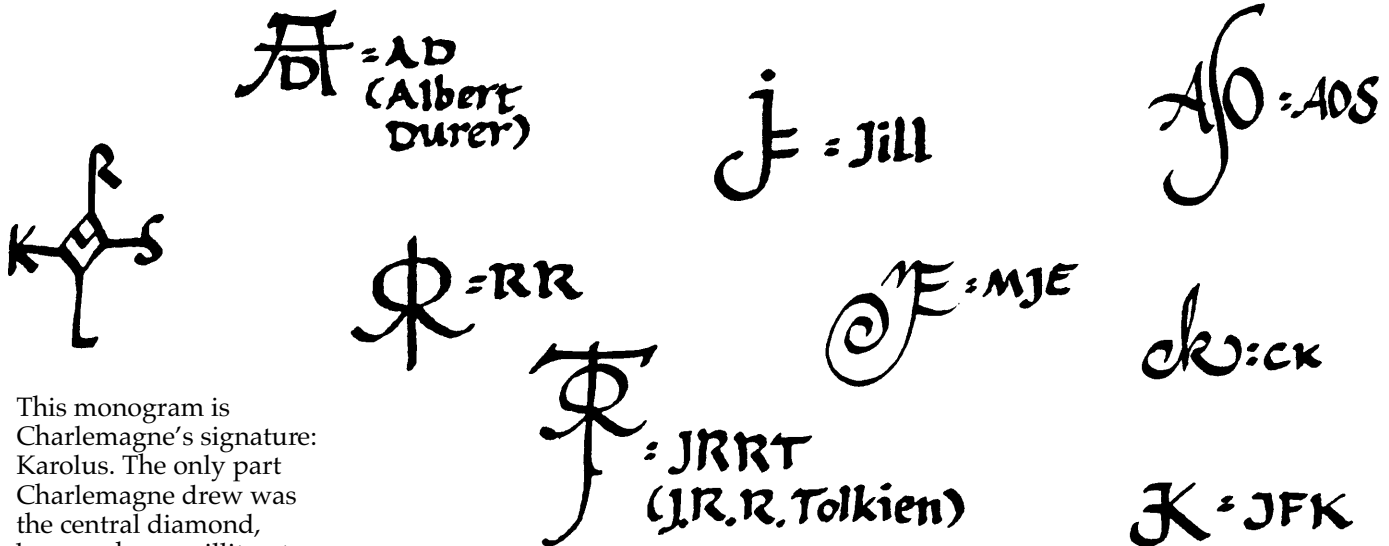 = AD
(Albert
Durer)
= Jill
= AOS
K R S L
= RR
= MJE
= CK
= JRRT
(J.R.R. Tolkien)
= JFK
This monogram is
Charlemagne's signature:
Karolus. The only part
Charlemagne drew was
the central diamond,